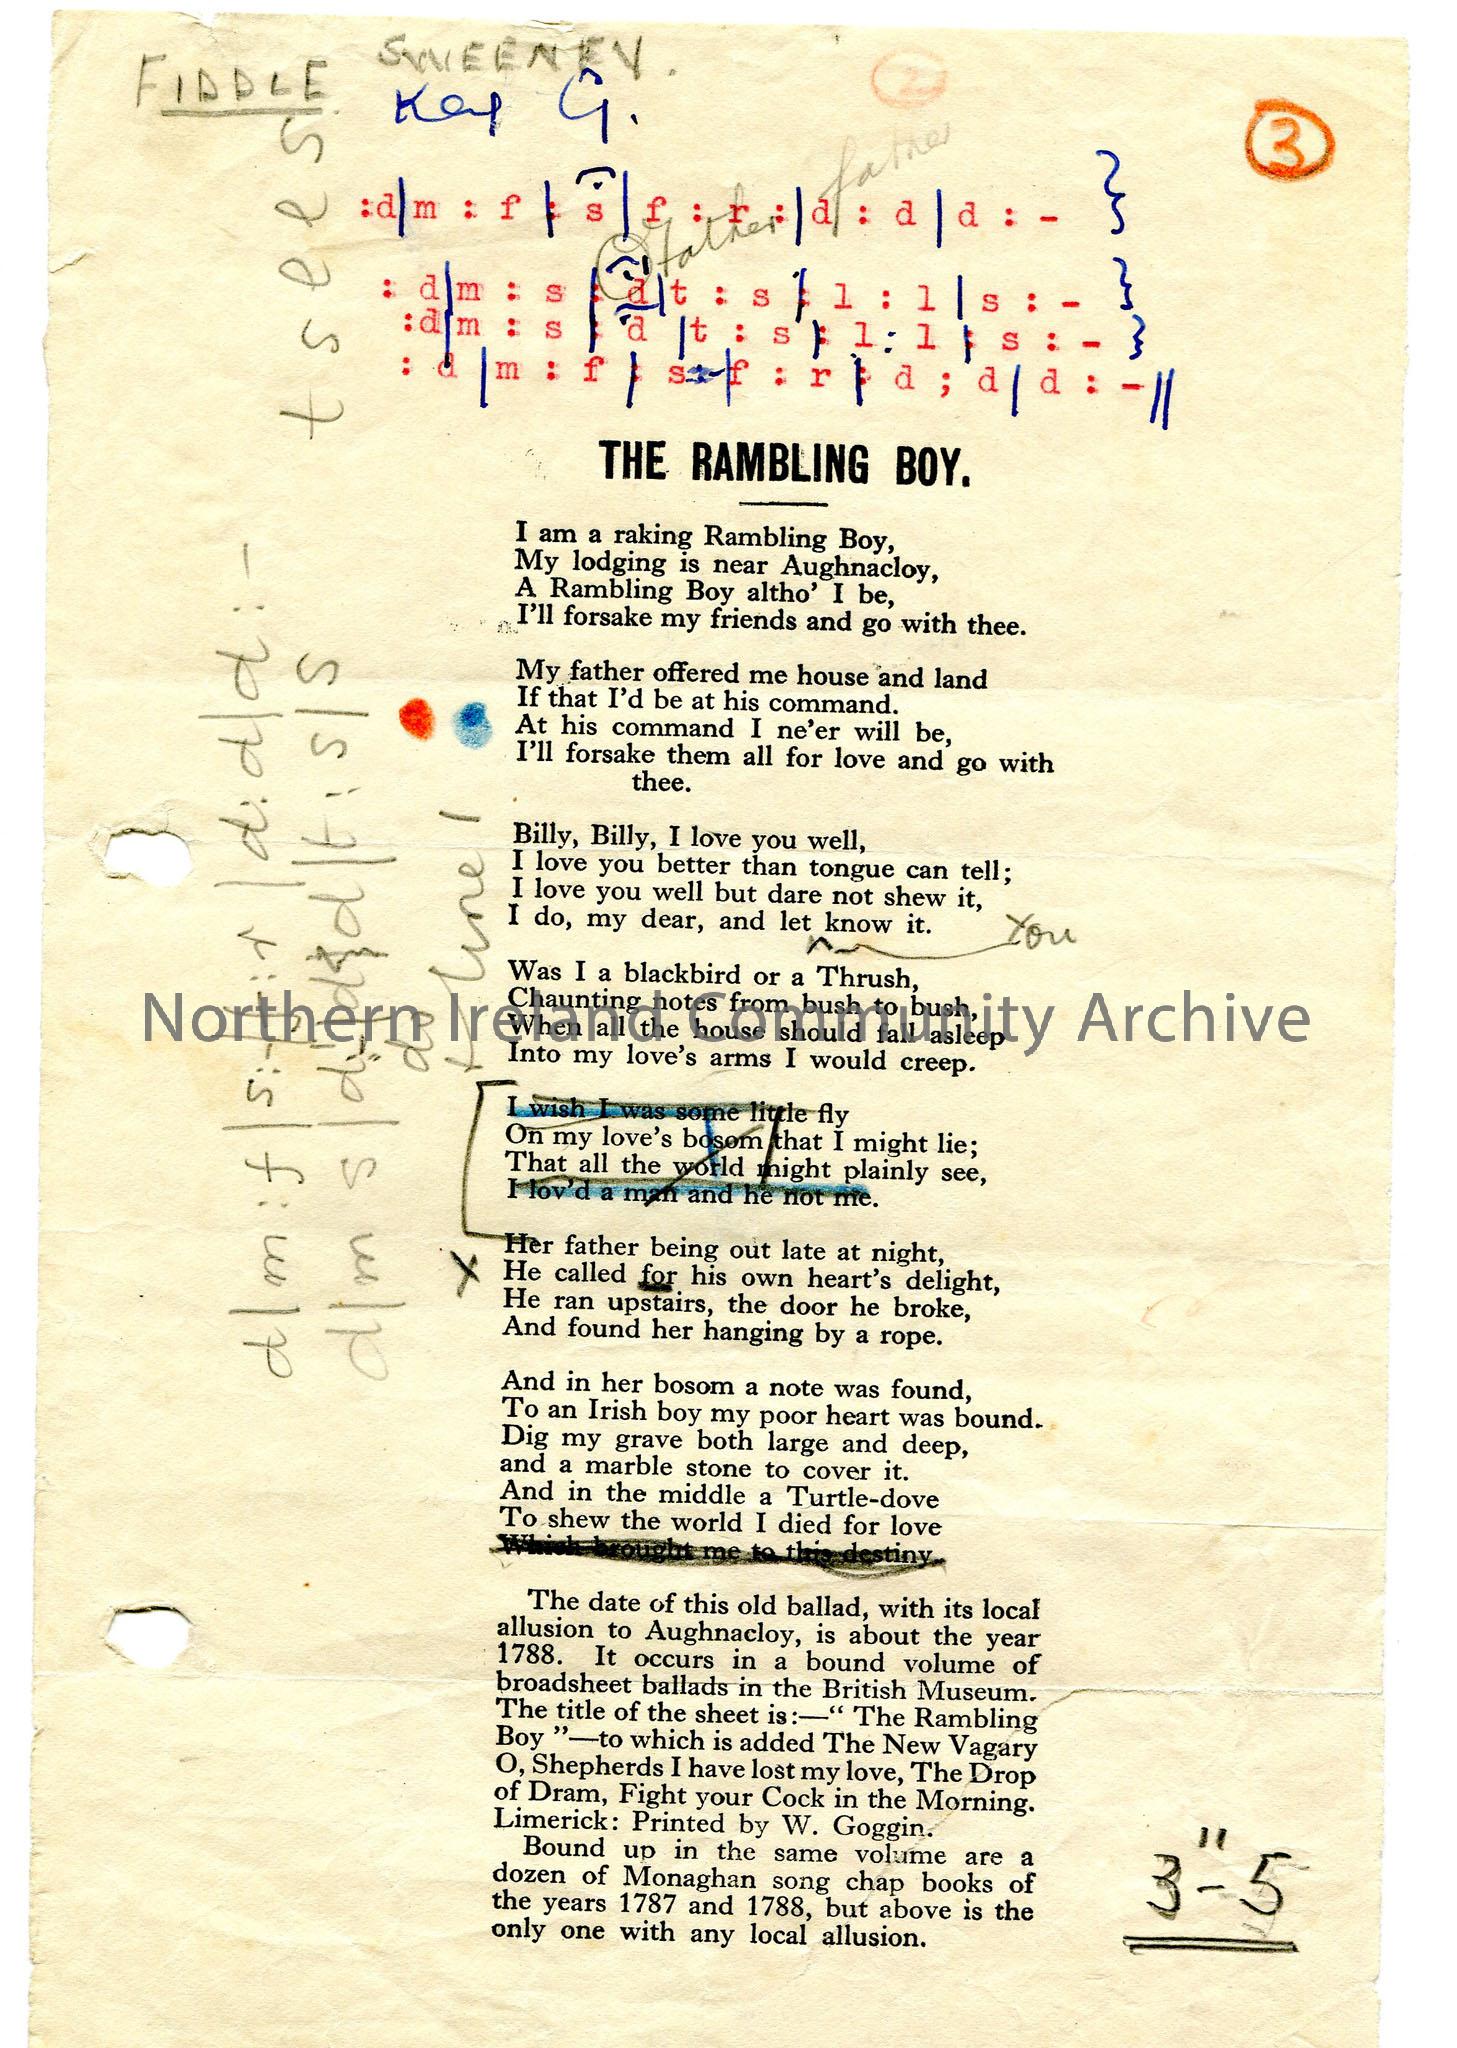 SWEENEY.
FIDDLE
Key G.
2
3
father
:d|m : f | s|f : r :|d : d|d : - }
father
: d|m : s : d|t : s : l : l|s : - }
:d|m : s : d|t : s : l : l | s : - }
: d|m : f : s : f : r : d ; d|d : -||
THE RAMBLING BOY.
I am a raking Rambling Boy,
My lodging is near Aughnacloy,
A Rambling Boy altho' I be,
I'll forsake my friends and go with thee.
My father offered me house and land
If that I'd be at his command.
At his command I ne'er will be,
I'll forsake them all for love and go with
thee.
Billy, Billy, I love you well,
I love you better than tongue can tell;
I love you well but dare not shew it,
I do, my dear, and let know it.
You
Was I a blackbird or a Thrush,
Chaunting notes from bush to bush,
When all the house should fall asleep
Into my love's arms I would creep.
Northern Ireland Community Archive
I wish I was some little fly
On my love's bosom that I might lie;
That all the world might plainly see,
I lov'd a man and he not me.
Her father being out late at night,
x He called for his own heart's delight,
He ran upstairs, the door he broke,
And found her hanging by a rope.
And in her bosom a note was found,
To an Irish boy my poor heart was bound.
Dig my grave both large and deep,
and a marble stone to cover it.
And in the middle a Turtle-dove
To shew the world I died for love
Which brought me to this destiny.
The date of this old ballad, with its local
allusion to Aughnacloy, is about the year
1788. It occurs in a bound volume of
broadsheet ballads in the British Museum.
The title of the sheet is:—“ The Rambling
Boy ”—to which is added The New Vagary
O, Shepherds I have lost my love, The Drop
of Dram, Fight your Cock in the Morning.
Limerick: Printed by W. Goggin.
Bound up in the same volume are a
dozen of Monaghan song chap books of
the years 1787 and 1788, but above is the
only one with any local allusion.
3"-5